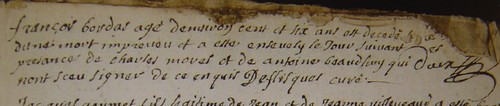 françois bordas agé denviron cent et six ans est decedé
dune mort impreveu et a esté ensevely le Jour suivant es
presances de charles moves et de antoine qui
nont sceu signer de ce enquis Desfisques curé
Jacques fils legitime de Jean et de Jeanne